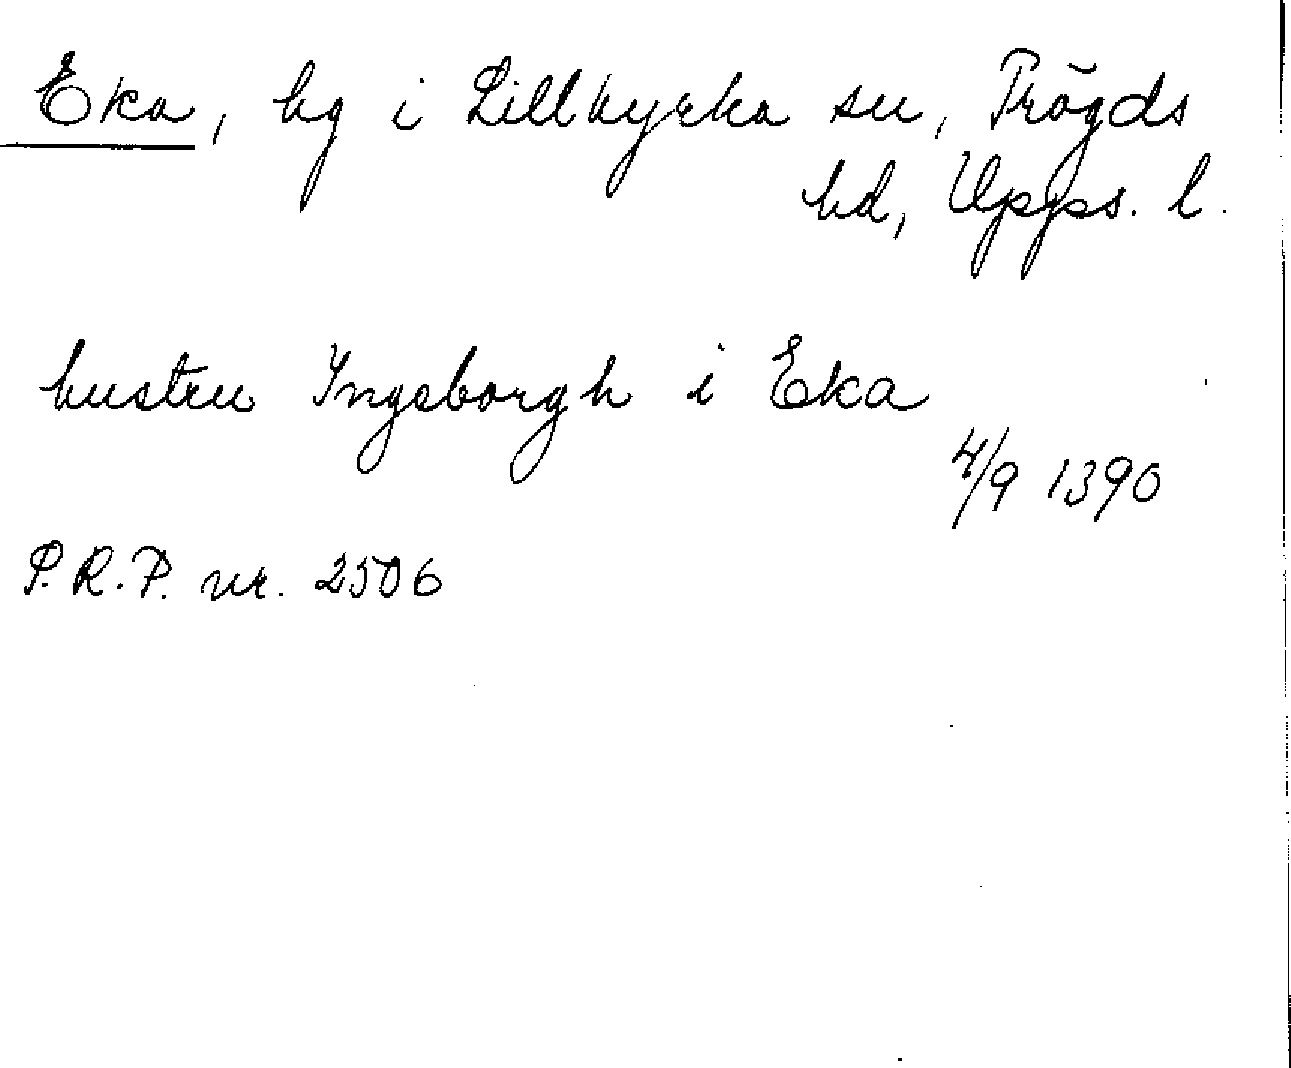 Eka, hg i Lillkyrka sn, Trögds
hd, Upps. l.
hustru Ingeborgh i Eka
4/9 1390
P.R.P. nr. 2506